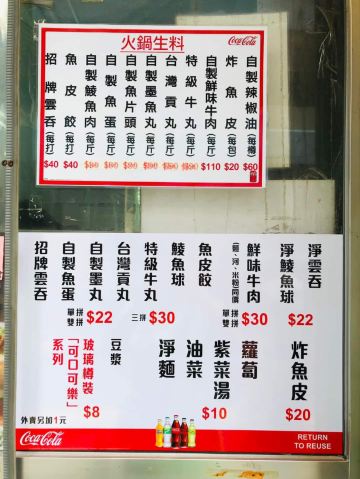 火鍋生料
Coca-Cola
自製辣椒油(每樽)$60
炸魚皮(每包)$20
自製鮮味牛肉(每斤)$110
特級牛丸(每斤)
台灣貢丸(每斤)
自製墨魚丸(每斤)
自製魚片頭(每斤)
自製魚蛋(每斤)
自製鯪魚肉(每斤)
魚皮餃(每打)$40
招牌雲吞(每打)$40
淨雲吞
淨鯪魚球
$22
鮮味牛肉
(麵、河、米粉同價)
單拼
雙拼
$30
魚皮餃
鯪魚球
特級牛丸
三拼 $30
台灣貢丸
自製墨丸
自製魚蛋
招牌雲吞
單拼
雙拼
$22
炸魚皮
$20
蘿蔔
紫菜湯
油菜
淨麵
$10
豆漿
玻璃樽裝
「可口可樂」
系列
$8
外賣另加1元
Coca-Cola
RETURN
TO REUSE